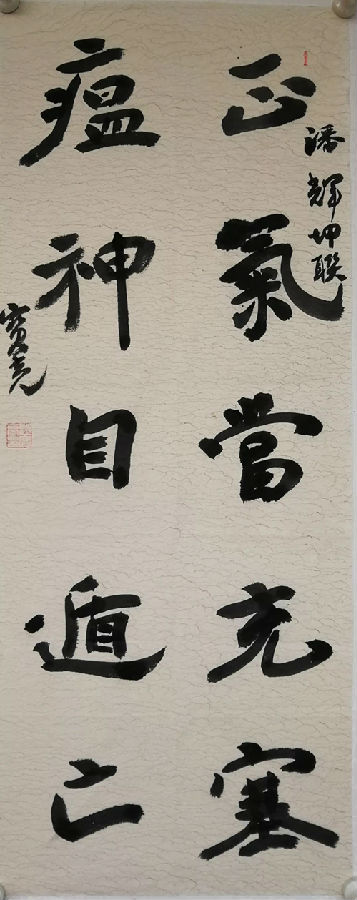 潘輝坤聯
正氣當充塞
瘟神自遁亡
寶亮